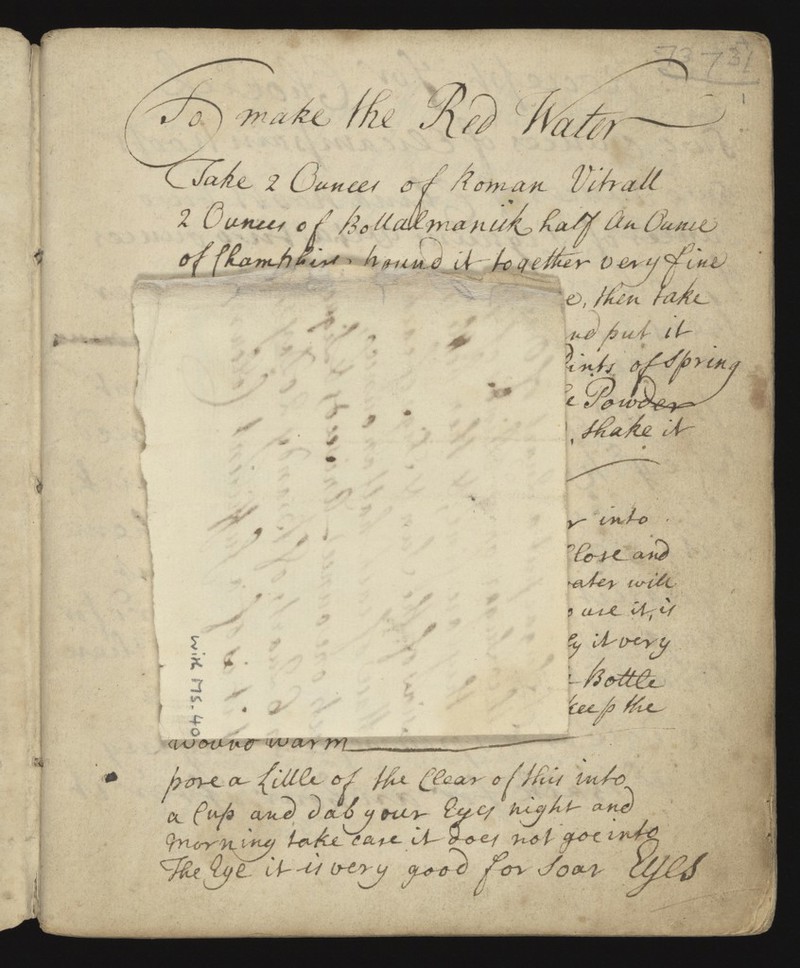 73731
1
To make the Red Water
Take 2 Ounces of Roman Vitrall
2 Ounces of Bollalmanick half An Ounce
of Champhire. pound it together very fine
e, then take
nd put it
Pints of Spring
e Powder
, shake it
r into
Close and
water will
o use it, is
ly it very
Bottle
keep the
wound warm
pore a Little of the Clear of this into
a Cup and dab your Eyes night and
morning take care it does not goe into
The Eye it is very good for Soar Eyes
Wik Ms. 40